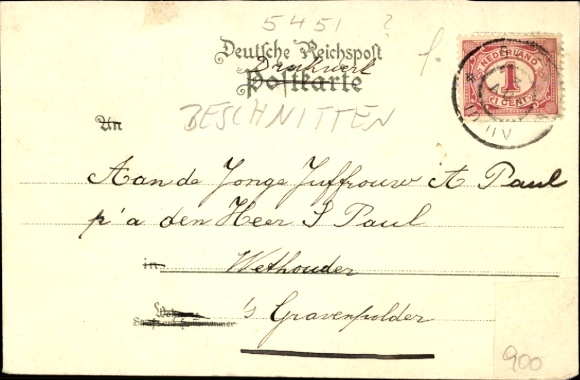 5451 ?
Deutsche Reichspost
Drukwerk
Postkarte
NEDERLAND
1
1 CENT
BESCHNITTEN
An
Aan de Jonge Juffrouw A Paul
p/a den Heer S Paul
in Wethouder
Wohnung
's Gravenpolder
900